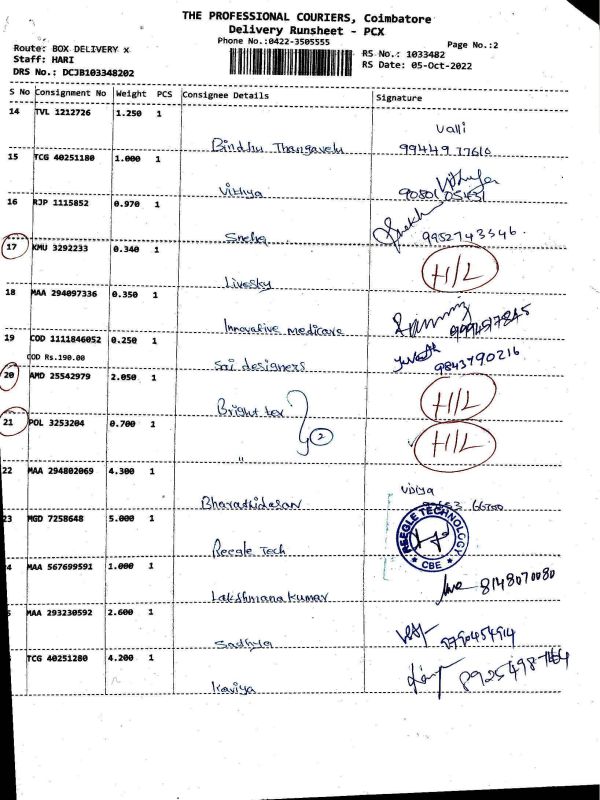 THE PROFESSIONAL COURIERS, Coimbatore
Delivery Runsheet - PCX
Phone No.:0422-3505555
Page No.:2
Route: BOX DELIVERY x
Staff: HARI
DRS No.: DCJB103348202
RS No.: 1033482
RS Date: 05-Oct-2022
S No Consignment No Weight PCS Consignee Details Signature
14 TVL 1212726 1.250 1
Valli
Bindhu Thangavelu
15 TCG 40251180 1.000 1
Vidhya
16 RJP 1115852 0.970 1
Sneha 9952743346
17 KMU 3292233 0.340 1 H/L
Livesky
18 MAA 294097336 0.350 1
Innovative medicare
19 COD 1111846052 0.250 1
COD Rs.190.00
Sai designers 9843790216
20 AMD 25542979 2.050 1 H/L
Bright tex
21 POL 3253204 0.700 1 H/L
2
"
22 MAA 294802069 4.300 1
Vidya
Bharathidasan
23 MGD 7258648 5.000 1
REEGLE TECHNOLOGY
★ CBE ★
Reegle Tech
4 MAA 567699591 1.000 1
Lakshmana Kumar 8148070080
MAA 293230592 2.600 1
Sadhya 8790454914
TCG 40251280 4.200 1
Kaviya